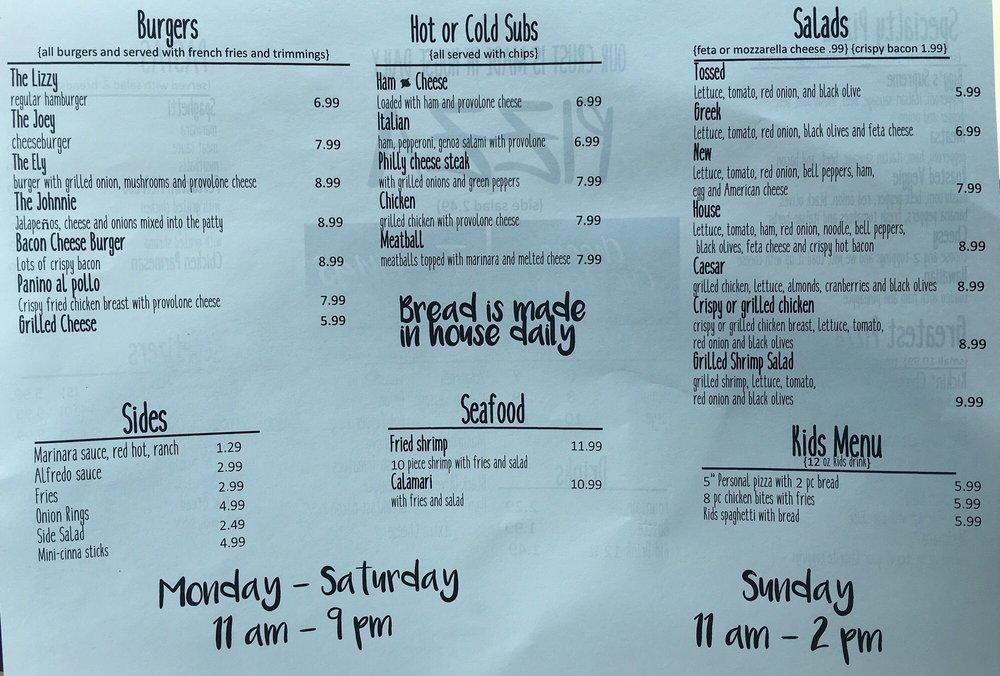 Burgers
{all burgers and served with french fries and trimmings}
The Lizzy
regular hamburger 6.99
The Joey
cheeseburger 7.99
The Ely
burger with grilled onion, mushrooms and provolone cheese 8.99
The Johnnie
Jalapeños, cheese and onions mixed into the patty 8.99
Bacon Cheese Burger
Lots of crispy bacon 8.99
Panino al pollo
Crispy fried chicken breast with provolone cheese 7.99
Grilled Cheese 5.99
Hot or Cold Subs
{all served with chips}
Ham & Cheese
Loaded with ham and provolone cheese 6.99
Italian
ham, pepperoni, genoa salami with provolone 6.99
Philly cheese steak
with grilled onions and green peppers 7.99
Chicken
grilled chicken with provolone cheese 7.99
Meatball
meatballs topped with marinara and melted cheese 7.99
Bread is made
in house daily
Salads
{feta or mozzarella cheese .99} {crispy bacon 1.99}
Tossed
lettuce, tomato, red onion, and black olive 5.99
Greek
Lettuce, tomato, red onion, black olives and feta cheese 6.99
New
Lettuce, tomato, red onion, bell peppers, ham,
egg and American cheese 7.99
House
Lettuce, tomato, ham, red onion, noodle, bell peppers,
black olives, feta cheese and crispy hot bacon 8.99
Caesar
grilled chicken, lettuce, almonds, cranberries and black olives 8.99
Crispy or grilled chicken
crispy or grilled chicken breast, lettuce, tomato,
red onion and black olives 8.99
Grilled Shrimp Salad
grilled shrimp, lettuce, tomato,
red onion and black olives 9.99
Sides
Marinara sauce, red hot, ranch 1.29
Alfredo sauce 2.99
Fries 2.99
Onion Rings 4.99
Side Salad 2.49
Mini-cinna sticks 4.99
Seafood
Fried shrimp 11.99
10 piece shrimp with fries and salad
Calamari 10.99
with fries and salad
Kids Menu
{12 oz kids drink}
5" Personal pizza with 2 pc bread 5.99
8 pc chicken bites with fries 5.99
Kids spaghetti with bread 5.99
Monday - Saturday
11 am - 9 pm
Sunday
11 am - 2 pm